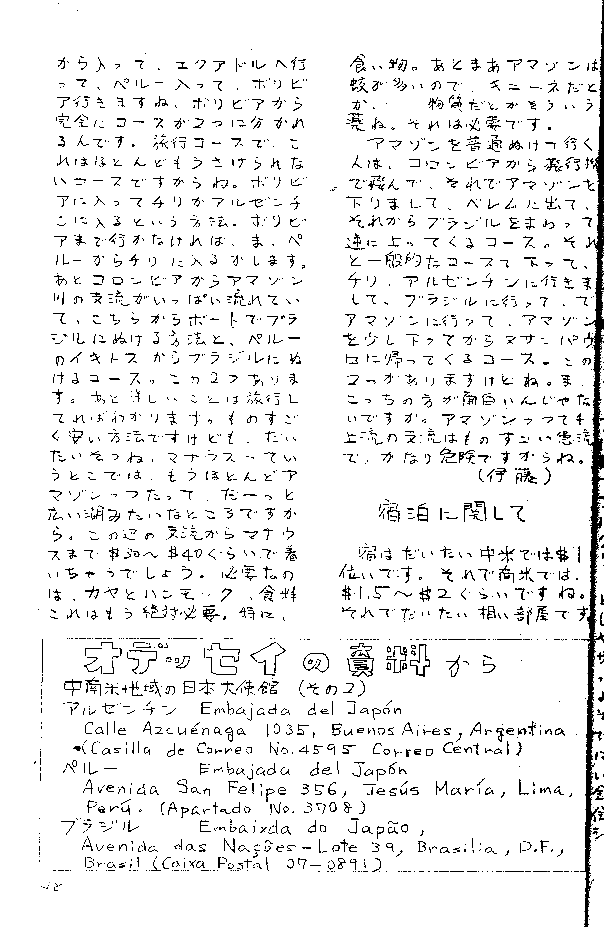 から入って、エクアドルへ行
って、ペルー入って、ボリビ
ア行きますね。ボリビアから
完全にコースが2つに分かれ
るんです。旅行コースで、こ
れはほとんどもうさけられな
いコースですからね。ボリビ
アに入ってチリかアルゼンチ
ンに入るという方法。ボリビ
アまで行かなければ、ま、ペ
ルーからチリに入るかします。
あとコロンビアからアマゾン
川の支流がいっぱい流れてい
て、こちらからボートでブラ
ジルにぬける方法と、ペルー
のイキトスからブラジルにぬ
けるコース。この2つありま
す。あと詳しいことは旅行し
てればわかります。ものすご
く安い方法ですけども、だい
たいそうね、マナウスってい
うとこでは、もうほとんどア
マゾンっつたって、だーっと
広い湖みたいなところですか
ら。この辺の支流からマナウ
スまで $30〜$40ぐらいで着
いちゃうでしょう。必要なの
は、カヤとハンモック、食料
これはもう絶対必要。特に、
食い物。あとまあアマゾンは
蚊が多いので、キニーネだと
か、 物質だとかそういう
薬ね。それは必要です。
アマゾンを普通ぬけて行く
人は、コロンビアから飛行機
で飛んで、それでアマゾンと
下りまして、ベレムに出て、
それからブラジルをまわって
逆に上ってくるコース。それ
と一般的なコースで下って、
チリ、アルゼンチンに行きま
して、ブラジルに行って、で
アマゾンに行って、アマゾン
を少し下ってからマナ
に帰ってくるコース。この
2つがありますけどね。ま、
こっちの方が面白いんじゃな
いですか。アマゾンっつても
上流の支流はものすごい急流
で、かなり危険ですからね。
(伊藤)
宿泊に関して
宿はだいたい中米では$1
位いです。それで南米では、
$1.5〜$2ぐらいですね。
それでだいたい相い部屋です
オデッセイの資料から
中南米地域の日本大使館 (その2)
アルゼンチン Embajada del Japón
Calle Azcuénaga 1035, Buenos Aires, Argentina
(Casilla de Correo No.4595 Correo Central)
ペルー Embajada del Japón
Avenida San Felipe 356, Jesús María, Lima,
Perú. (Apartado No. 3708)
ブラジル Embaixda do Japão,
Avenida das Nações-Lote 39, Brasilia, D.F.,
Brasil (Caixa Postal 07-0891)